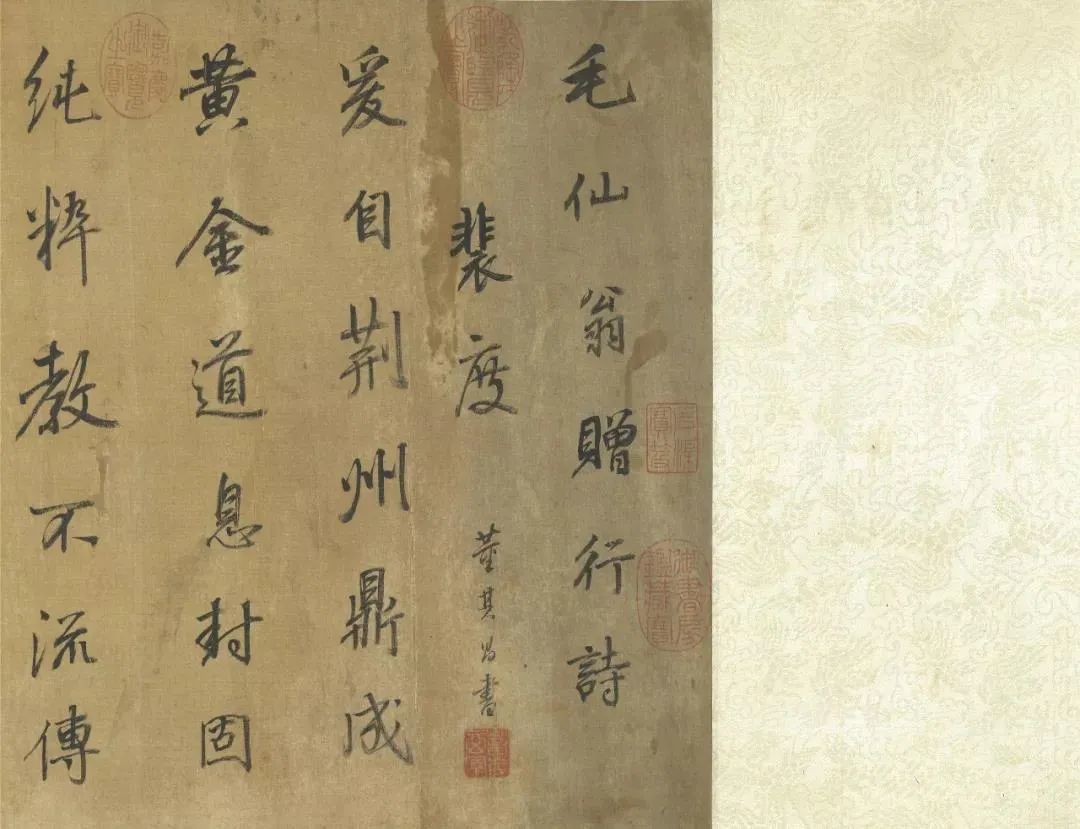 毛仙翁贈行詩
裴度 董其昌書
爰自荆州鼎成
黄金道息封固
純粹教不流傳